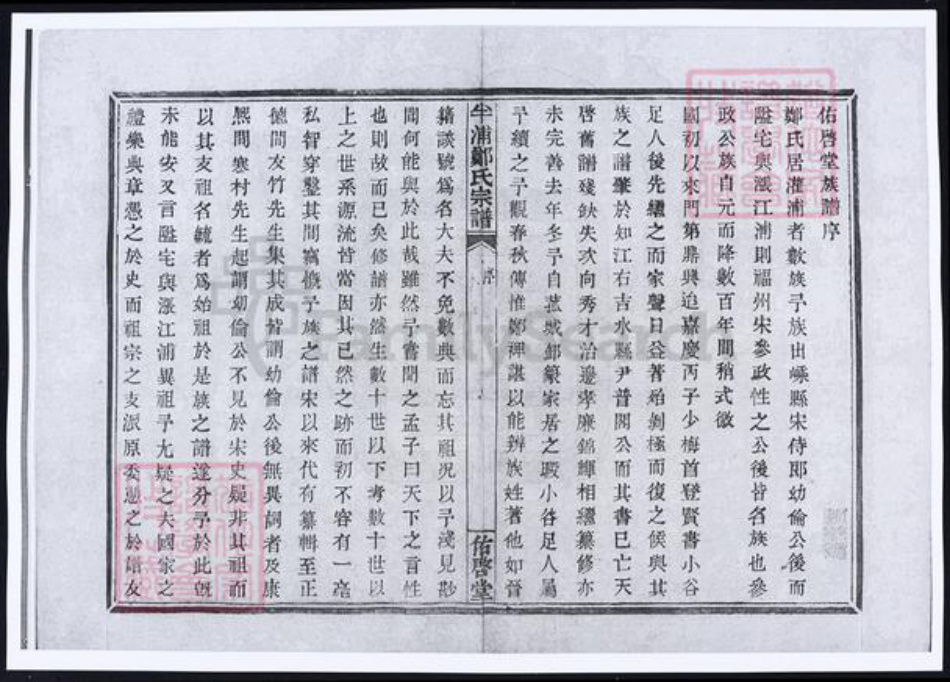 佑啓堂族譜序
鄭氏居灌浦者數族予族出嵊縣宋侍郎幼倫公後而
隘宅與漲江浦則福州宋參政性之公後皆名族也參
政公族自元而降數百年間稍式微
國初以來門第鼎興迨嘉慶丙子少梅首登賢書小谷
足人後先繼之而家聲日益著殆剝極而復之候與其
族之譜肇於知江右吉水縣尹普閣公而其書已亡天
啓舊譜殘缺失次向秀才治邊孝廉錦輝相繼纂修亦
未完善去年冬予自菰城卸篆家居之暇小谷足人屬
予續之予觀春秋傳惟鄭裨諶以能辨族姓著他如晉
牛浦鄭氏宗譜
序
佑啓堂
籍談號爲名大夫不免數典而忘其祖况以予淺見尠
聞何能與於此哉雖然予嘗聞之孟子曰天下之言性
也則故而已矣修譜亦然生數十世以下考數十世以
上之世系源流皆當因其已然之跡而初不容有一毫
私智穿鑿其間竊慨予族之譜宋以來代有纂輯至正
德間友竹先生集其成皆謂幼倫公後無異詞者及康
熙間寒村先生起謂幼倫公不見於宋史疑非其祖而
以其支祖名毓者爲始祖於是族之譜遂分予於此旣
未能安又言隘宅與漲江浦異祖予尤疑之夫國家之
禮樂典章憑之於史而祖宗之支派原委憑之於譜友
FamilySearch